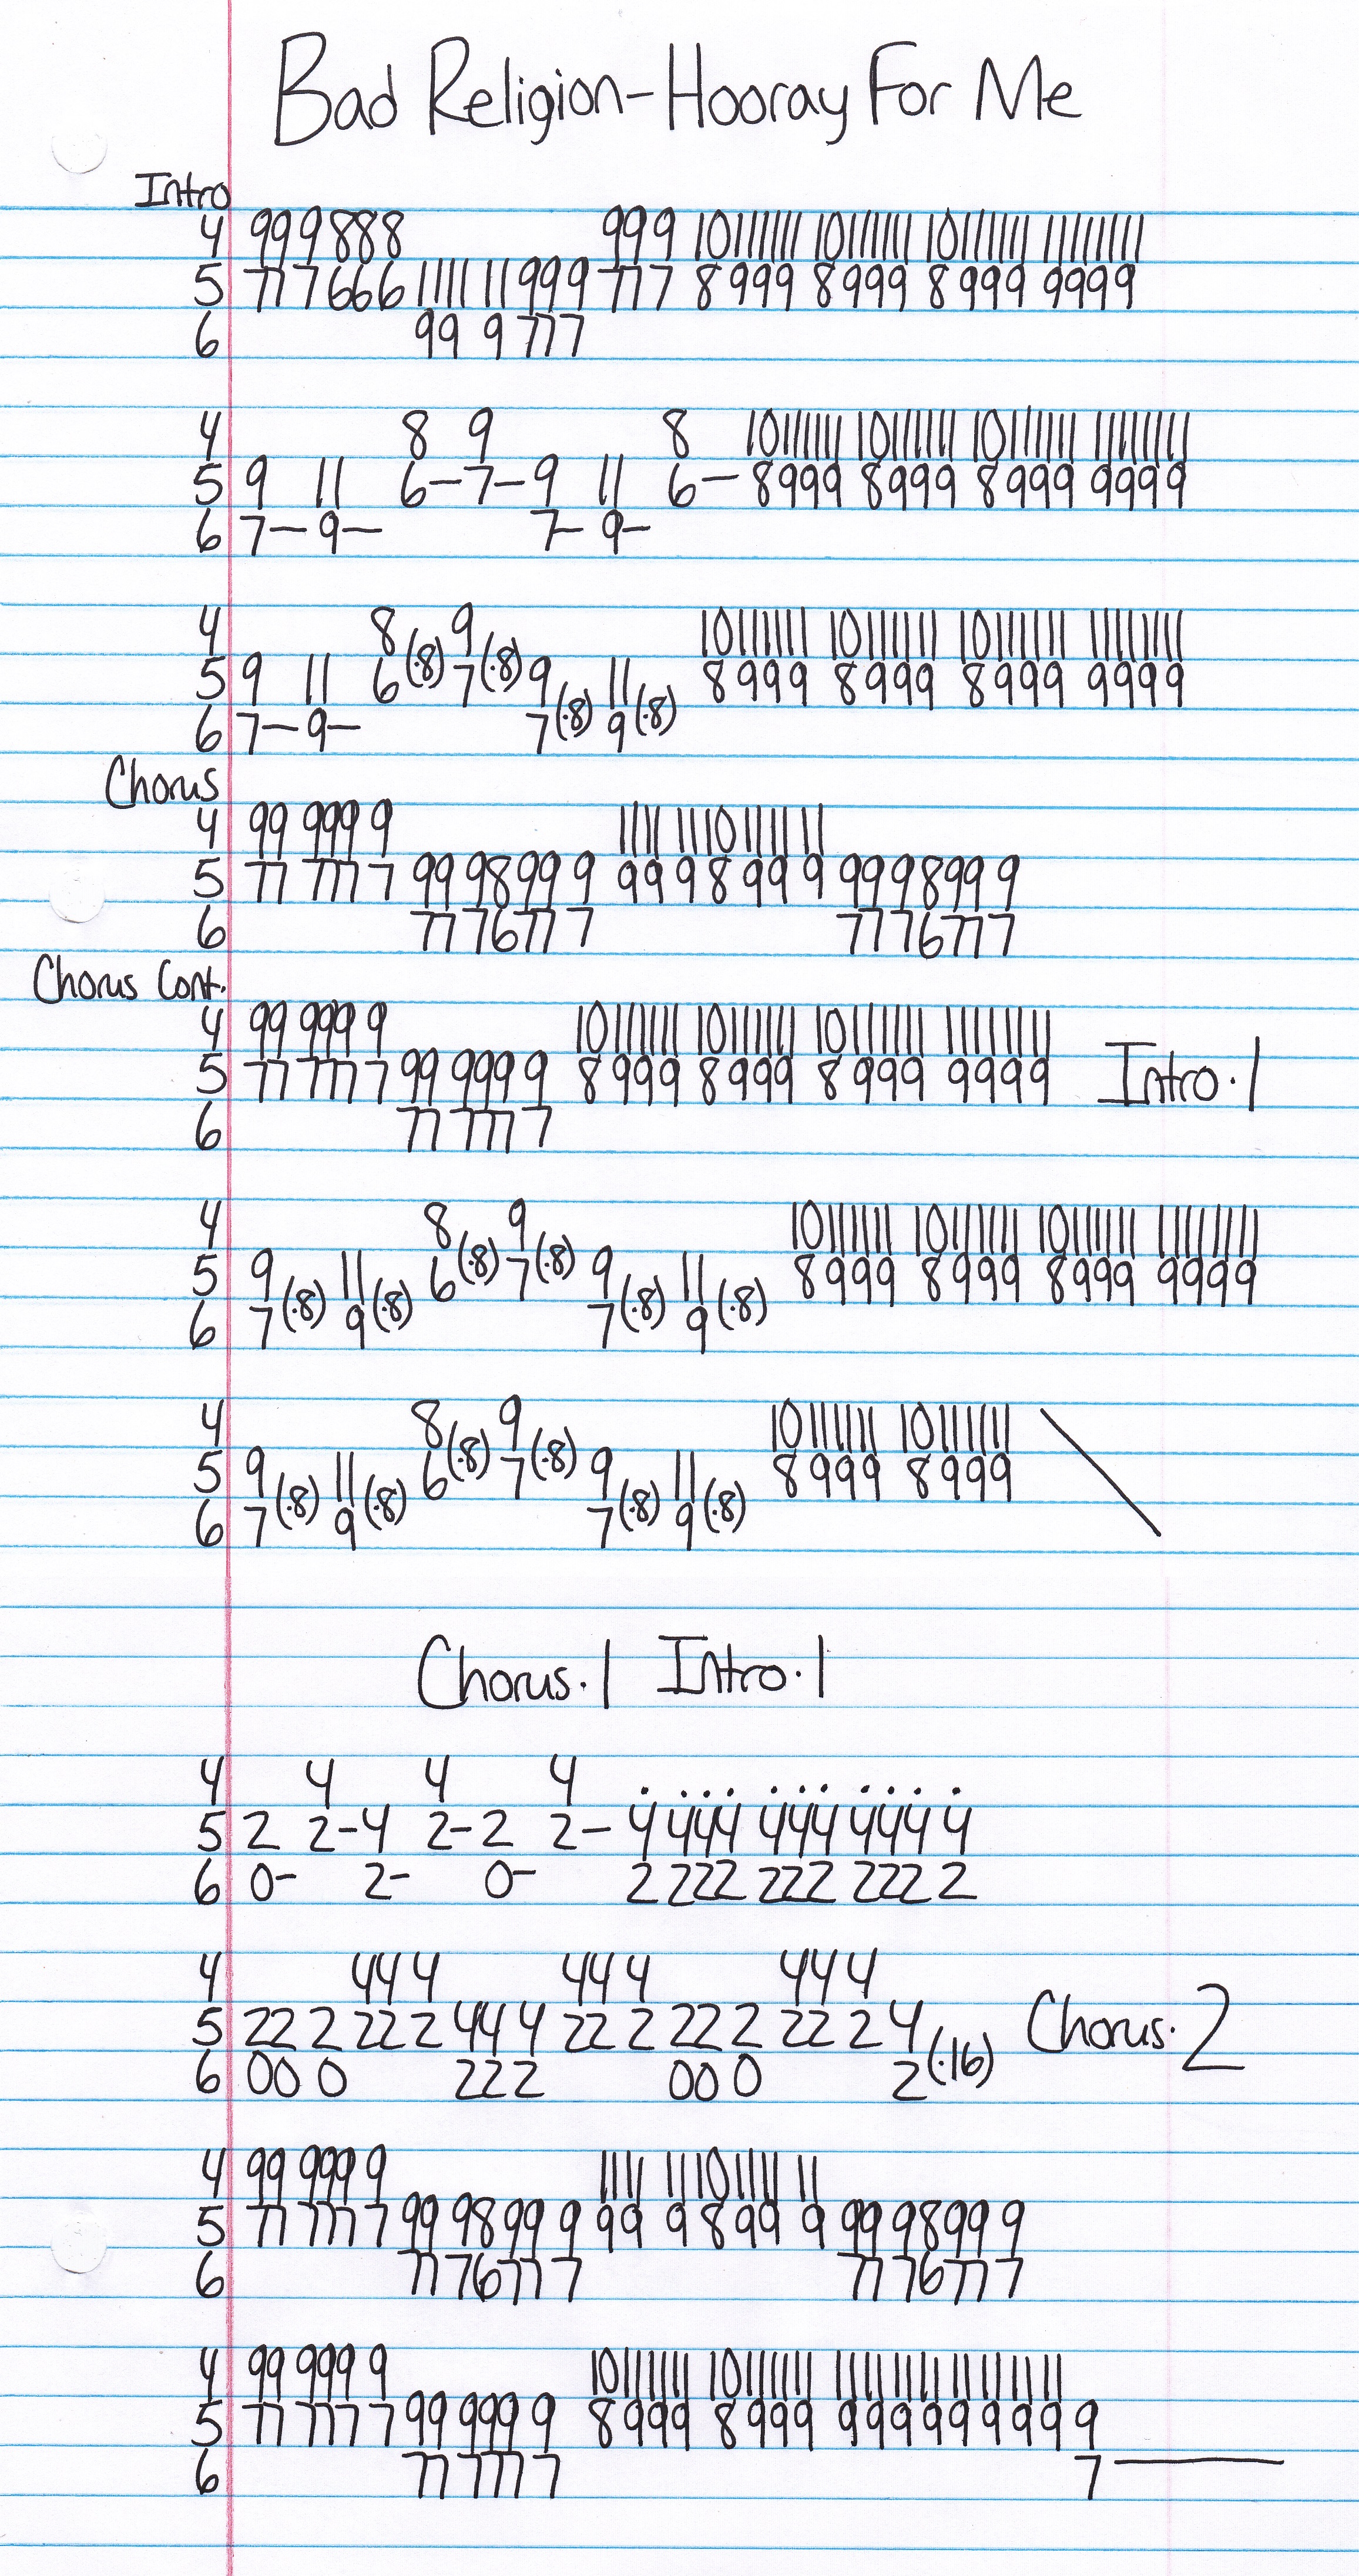 Bad Religion-Hooray For Me
Intro
4 99 9 888 999 10 11 11 11 10 11 11 11 10 11 11 11 11 11 11 11
5 77 7 666 11 11 11 999 777 8 999 8 999 8 999 9999
6 99 9 777
4 8 9 8 10 11 11 11 10 11 11 11 10 11 11 11 11 11 11 11
5 9 11 6-7-9 11 6- 8999 8999 8999 9999
6 7- 9- 7- 9-
4 8 9 10 11 11 11 10 11 11 11 10 11 11 11 11 11 11 11
5 9 11 6(.8) 7(.8) 9 11 8999 8999 8999 9999
6 7- 9- 7(.8) 9(.8)
Chorus
4 99 999 9 11 11 11 10 11 11 11
5 77 777 7 99 9899 9 99 9 8 99 9 99 9899 9
6 77 7677 7 77 7677 7
Chorus Cont.
4 99 999 9 10 11 11 11 10 11 11 11 10 11 11 11 11 11 11 11 Intro.1
5 77 777 7 99 999 9 8 999 8 999 8 999 9999
6 77 777 7
4 8 9 10 11 11 11 10 11 11 11 10 11 11 11 11 11 11 11
5 9 11 6(.8) 7(.8) 9 11 8 999 8 999 8 999 9999
6 7(.8) 9(.8) 7(.8) 9(.8)
4 8 9 10 11 11 11 10 11 11 11
5 9 11 6(.8) 7(.8) 9 11 8 999 8 999
6 7(.8) 9(.8) 7(.8) 9(.8)
Chorus.1 Intro.1
4 4 4 4 . . . . . . . . . . .
5 2 2-4 2-2 2- 4 444 444 444 4
6 0- 2- 0- 2 222 222 222 2
4 44 4 44 4 44 4
5 22 2 22 2 44 4 22 2 22 2 22 2 4 Chorus.2
6 00 0 22 2 00 0 2(.16)
4 99 999 9 11 11 11 10 11 11 11
5 77 777 7 99 9899 9 99 9 8 99 9 99 9899 9
6 77 7677 7 77 7677 7
4 99 999 9 10 11 11 11 10 11 11 11 11 11 11 11 11 11 11 11
5 77 777 7 99 999 9 8 999 8 999 999 99 9 99 9
6 77 777 7 7